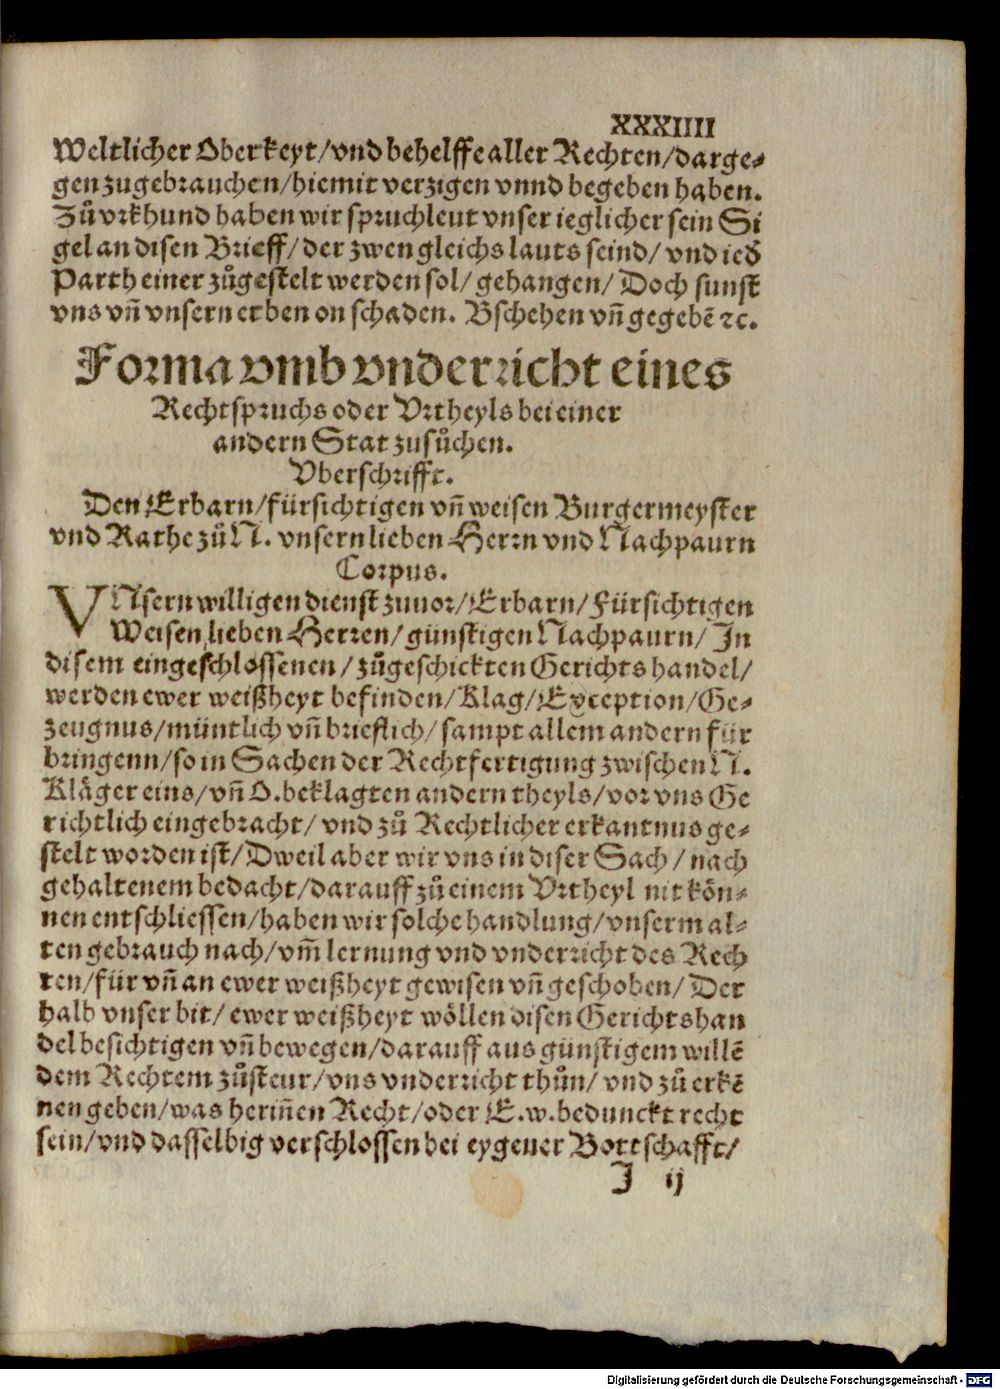 XXXIIII
Weltlicher Oberkeyt/vnd behelffe aller Rechten/darge⸗
gen zugebrauchen/hiemit verzigen vnnd begeben haben.
Zů vrkhund haben wir spruchleut vnser ieglicher sein Si
gel an disen Brieff/ der zwen gleichs lauts seind/ vnd ied̕
Parth einer zůgestelt werden sol/ gehangen/ Doch sunst
vns vñ vnsern erben on schaden. Bschehen vñ gegebē ⁊c.
Forma vmb vnderricht eines
Rechtspruchs oder Vrtheyls bei einer
andern Stat zusůchen.
Vberschrifft.
Den Erbarn/fürsichtigen vñ weisen Burgermeyster
vnd Rathe zů N. vnsern lieben Herrn vnd Nachpaurn
Corpus.
VNsern willigen dienst zuuor/Erbarn/Fürsichtigen
Weisen lieben Herren/ günstigen Nachpaurn/ In
disem eingeschlossenen/ zůgeschickten Gerichts handel/
werden ewer weißheyt befinden/Klag/Exception/Ge⸗
zeugnus/müntlich vñ brieflich/ sampt allem andern für
bringenn/so in Sachen der Rechtfertigung zwischen N.
Kläger eins/vñ O.beklagten andern theyls/vor vns Ge
richtlich eingebracht/ vnd zů Rechtlicher erkantnus ge⸗
stelt worden ist/Dweil aber wir vns in diser Sach/ nach
gehaltenem bedacht/darauff zů einem Vrtheyl nit kön⸗
nen entschliessen/haben wir solche handlung/vnserm al⸗
ten gebrauch nach/vm̃ lernung vnd vnderricht des Rech
ten/für vñ an ewer weißheyt gewisen vñ geschoben/ Der
halb vnser bit/ ewer weißheyt wöllen disen Gerichtshan
del besichtigen vñ bewegen/darauff aus günstigem willē
dem Rechtem zůsteur/vns vnderricht thůn/ vnd zů erkē
nen geben/was heriñen Recht/oder E.w.bedunckt recht
sein/vnd dasselbig verschlossen bei eygener Bottschafft/
I ij
Digitalisierung gefördert durch die Deutsche Forschungsgemeinschaft - DFG